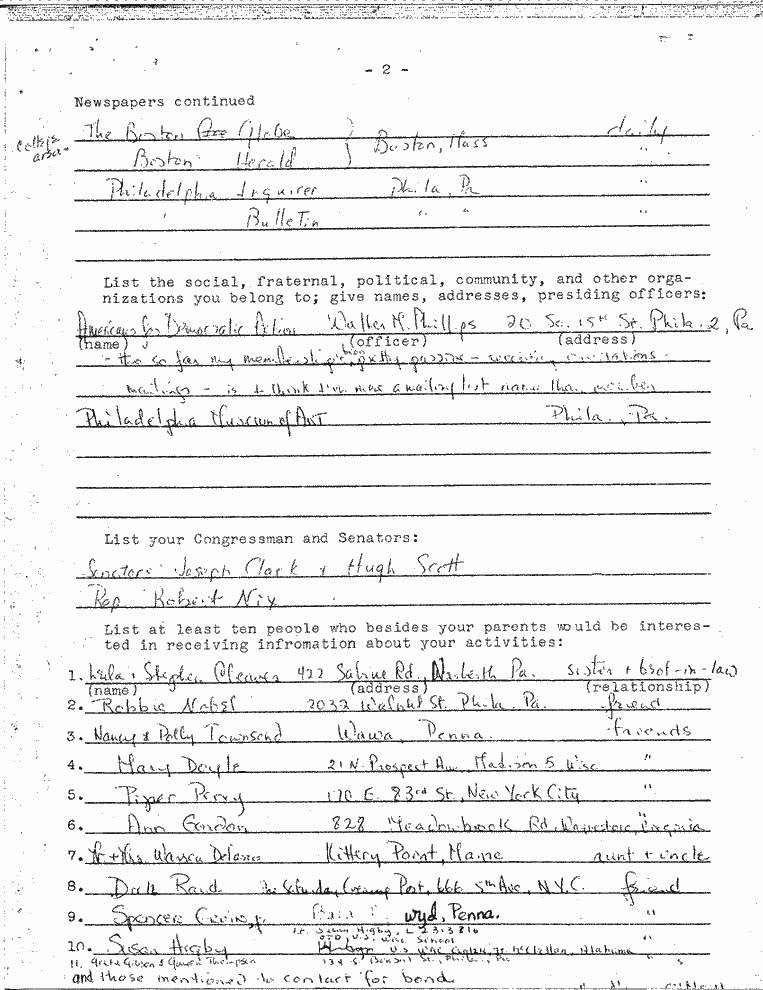 - 2 -
Newspapers continued
college area
The Boston Globe Boston, Mass daily
Boston Herald "
Philadelphia Inquirer Phila, Pa "
" Bulletin " " "
List the social, fraternal, political, community, and other orga-
nizations you belong to; give names, addresses, presiding officers:
Americans for Democratic Action Walter M. Phillips 20 So. 15th St. Phila. 2, Pa
(name) (officer) (address)
- tho so far my membership has been pretty passive - receiving invitations
mailings - is I think I'm more a mailing list name than member
Philadelphia Museum of Art Phila., Pa.
List your Congressman and Senators:
Senators Joseph Clark + Hugh Scott
Rep Robert Nix
List at least ten people who besides your parents would be interes-
ted in receiving infromation about your activities:
1. + Stephen 422 Sabine Rd, Pa. sister + brot-in-law
(name) (address) (relationship)
2. Robbie Nobel 2032 Walnut St. Phila. Pa. friend
3. Nancy & Polly Townsend Wawa, Penna. friends
4. Mary Doyle 21 N. Prospect Ave, Madison 5 Wisc "
5. Piper Perry 170 E. 83rd St., New York City "
6. Ann Gordon 828 Meadowbrook Rd,
7. Mr + Mrs Warren Delano Kittery Point, Maine aunt + uncle
8. the Saturday Evening Post, 666 5th Ave, N.Y.C. friend
9. Spencer wyd, Penna. "
10. Susan Higby
11. Thompson
and those mentioned to contact for bond